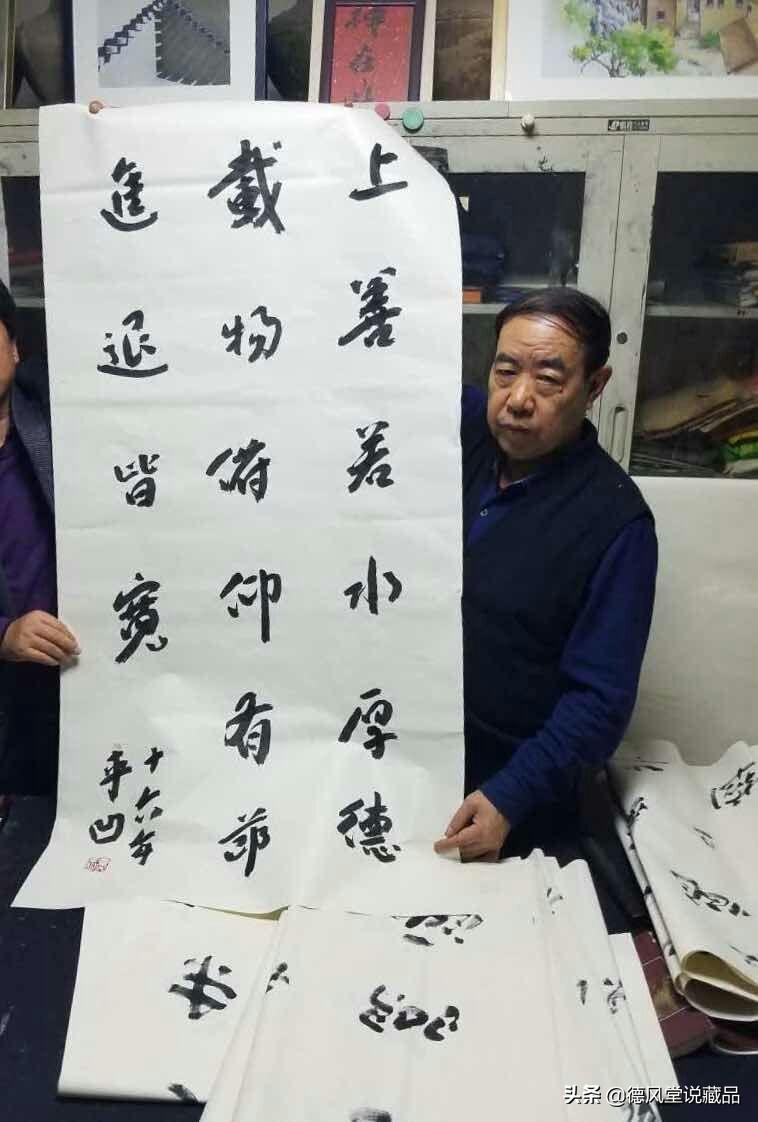 上善若水厚德
載物俯仰有節
進退皆寬
十六年
平凹
头条 @德风堂说藏品